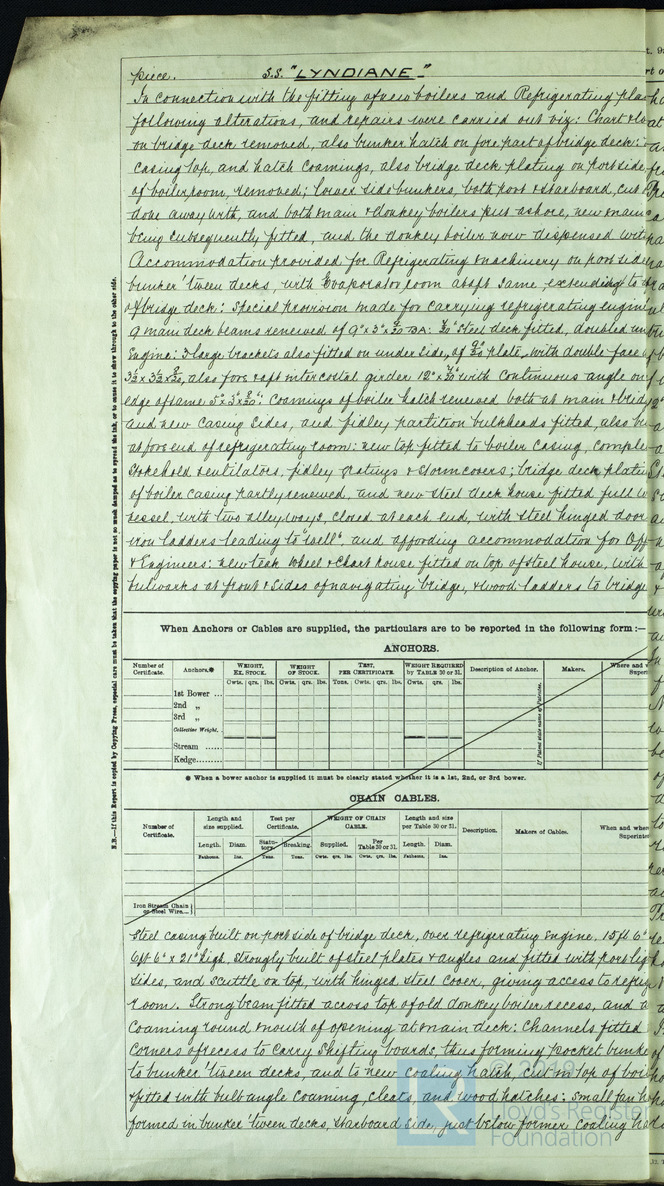 piece. S.S. "LYNDIANE"
In connection with the fitting of new boilers and Refrigerating pla
following alterations, and repairs were carried out viz: Chart
on bridge deck removed, also bunker hatch on fore part of bridge deck:
casing top, and hatch coamings, also bridge deck plating on port side
of boiler room, removed; lower side bunkers, both port & starboard, cut
done away with, and both main & donkey boilers put ashore, new main
being subsequently fitted, and the donkey boiler now dispensed with
Accommodation provided for Refrigerating machinery on port side
bunker 'tween decks, with Evaporator room abaft same, extending to
of bridge deck: Special provision made for carrying refrigerating engin
9 main deck beams renewed of 9" x 3" x Steel deck fitted, doubled un
Engine: 3 large brackets also fitted on under side, of plate, with double face
3½ x 3½ x also fore & aft intercostal girder 12" x with continuous angle on
edge of same Coamings of boiler hatch renewed both at main & brid
and new casing sides, and fidley partition bulkheads fitted, also
at fore end of refrigerating room: new top fitted to boiler casing, comple
Stokehold ventilators, fidley gratings & storm covers; bridge deck plati
of boiler casing partly renewed, and new steel deck house fitted full
vessel, with two alleyways, closed at each end, with steel hinged door
iron ladders leading to "well", and affording accommodation for Off
& Engineers: new teak wheel & chart house fitted on top of steel house, with
bulwarks at front & sides of navigating bridge, & wood ladders to bridge
When Anchors or Cables are supplied, the particulars are to be reported in the following form :—
ANCHORS.
Number of Certificate. Anchors.* WEIGHT, EX. STOCK. WEIGHT OF STOCK. TEST, PER CERTIFICATE. WEIGHT REQUIRED by TABLE 30 or 31. Description of Anchor. Makers. Where and w
Superi
Cwts. qrs. lbs. Cwts. qrs. lbs. Tons. Cwts. qrs. lbs. Cwts. qrs. lbs.
1st Bower ...
2nd „
3rd „
Collective Weight.
Stream ......
Kedge........
If Patent state name of Patentee.
* When a bower anchor is supplied it must be clearly stated whether it is a 1st, 2nd, or 3rd bower.
CHAIN CABLES.
Number of Certificate. Length and size supplied. Test per Certificate. WEIGHT OF CHAIN CABLE. Length and size per Table 30 or 31. Description. Makers of Cables. When and wher
Superinte
Length. Diam. Statutory. Breaking. Supplied. Per Table 30 or 31. Length. Diam.
Fathoms. Ins. Tons. Tons. Cwts. qrs. lbs. Cwts. qrs. lbs. Fathoms. Ins.
Iron Stream Chain
or Steel Wire...
Steel casing built on port side of bridge deck, over refrigerating Engine, 15ft 6"
6ft 6" x 21" high, strongly built of steel plates & angles and fitted with port lig
sides, and scuttle on top, with hinged steel cover, giving access to refrig
room. Strong beam fitted across top of old donkey boiler recess, and a
Coaming round mouth of opening at main deck: Channels fitted
corners of recess to carry shifting boards, thus forming pocket bunke
to bunker 'tween decks, and to new coaling hatch, cut on top of boi
& fitted with bulb angle coaming, cleats, and wood hatches: Small
formed in bunker 'tween decks, starboard side, just below former coaling ha
N.B.—If this Report is copied by Copying Press, especial care must be taken that the copying paper is not so much damped as to spread the ink, or to cause it to show through to the other side.
© 2019
LR
Lloyd's Register
Foundation